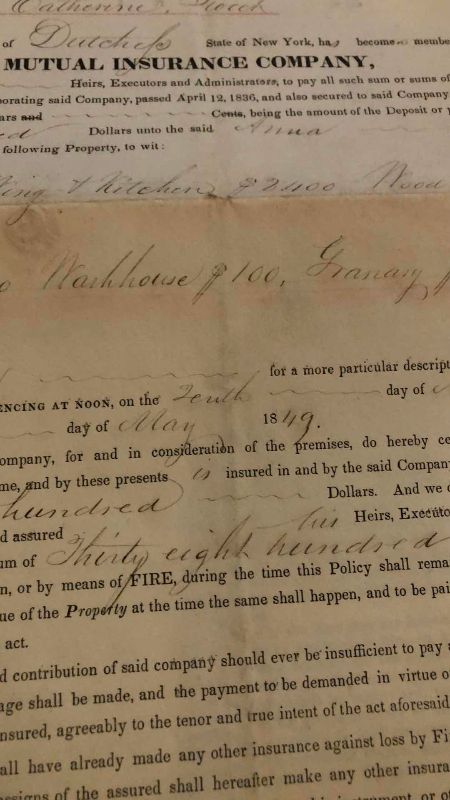 Catherine
of Dutchess State of New York, has become member
MUTUAL INSURANCE COMPANY,
Heirs, Executors and Administrators, to pay all such sum or sums of
orating said Company, passed April 12, 1836, and also secured to said Company
ars and Cents, being the amount of the Deposit or
ed Dollars unto the said Anna
following Property, to wit:
Wing & Kitchen $2400 Wood
Washhouse $100, Granary $
for a more particular descript
ENCING AT NOON, on the Tenth day of
day of May 1849.
ompany, for and in consideration of the premises, do hereby ce
me, and by these presents is insured in and by the said Compan
hundred Dollars. And we
d assured his Heirs, Executo
um of Thirty eight hundred
n, or by means of FIRE, during the time this Policy shall rema
ue of the Property at the time the same shall happen, and to be pai
act.
d contribution of said company should ever be insufficient to pay
age shall be made, and the payment to be demanded in virtue o
nsured, agreeably to the tenor and true intent of the act aforesaid
all have already made any other insurance against loss by Fi
assigns of the assured shall hereafter make any other insura